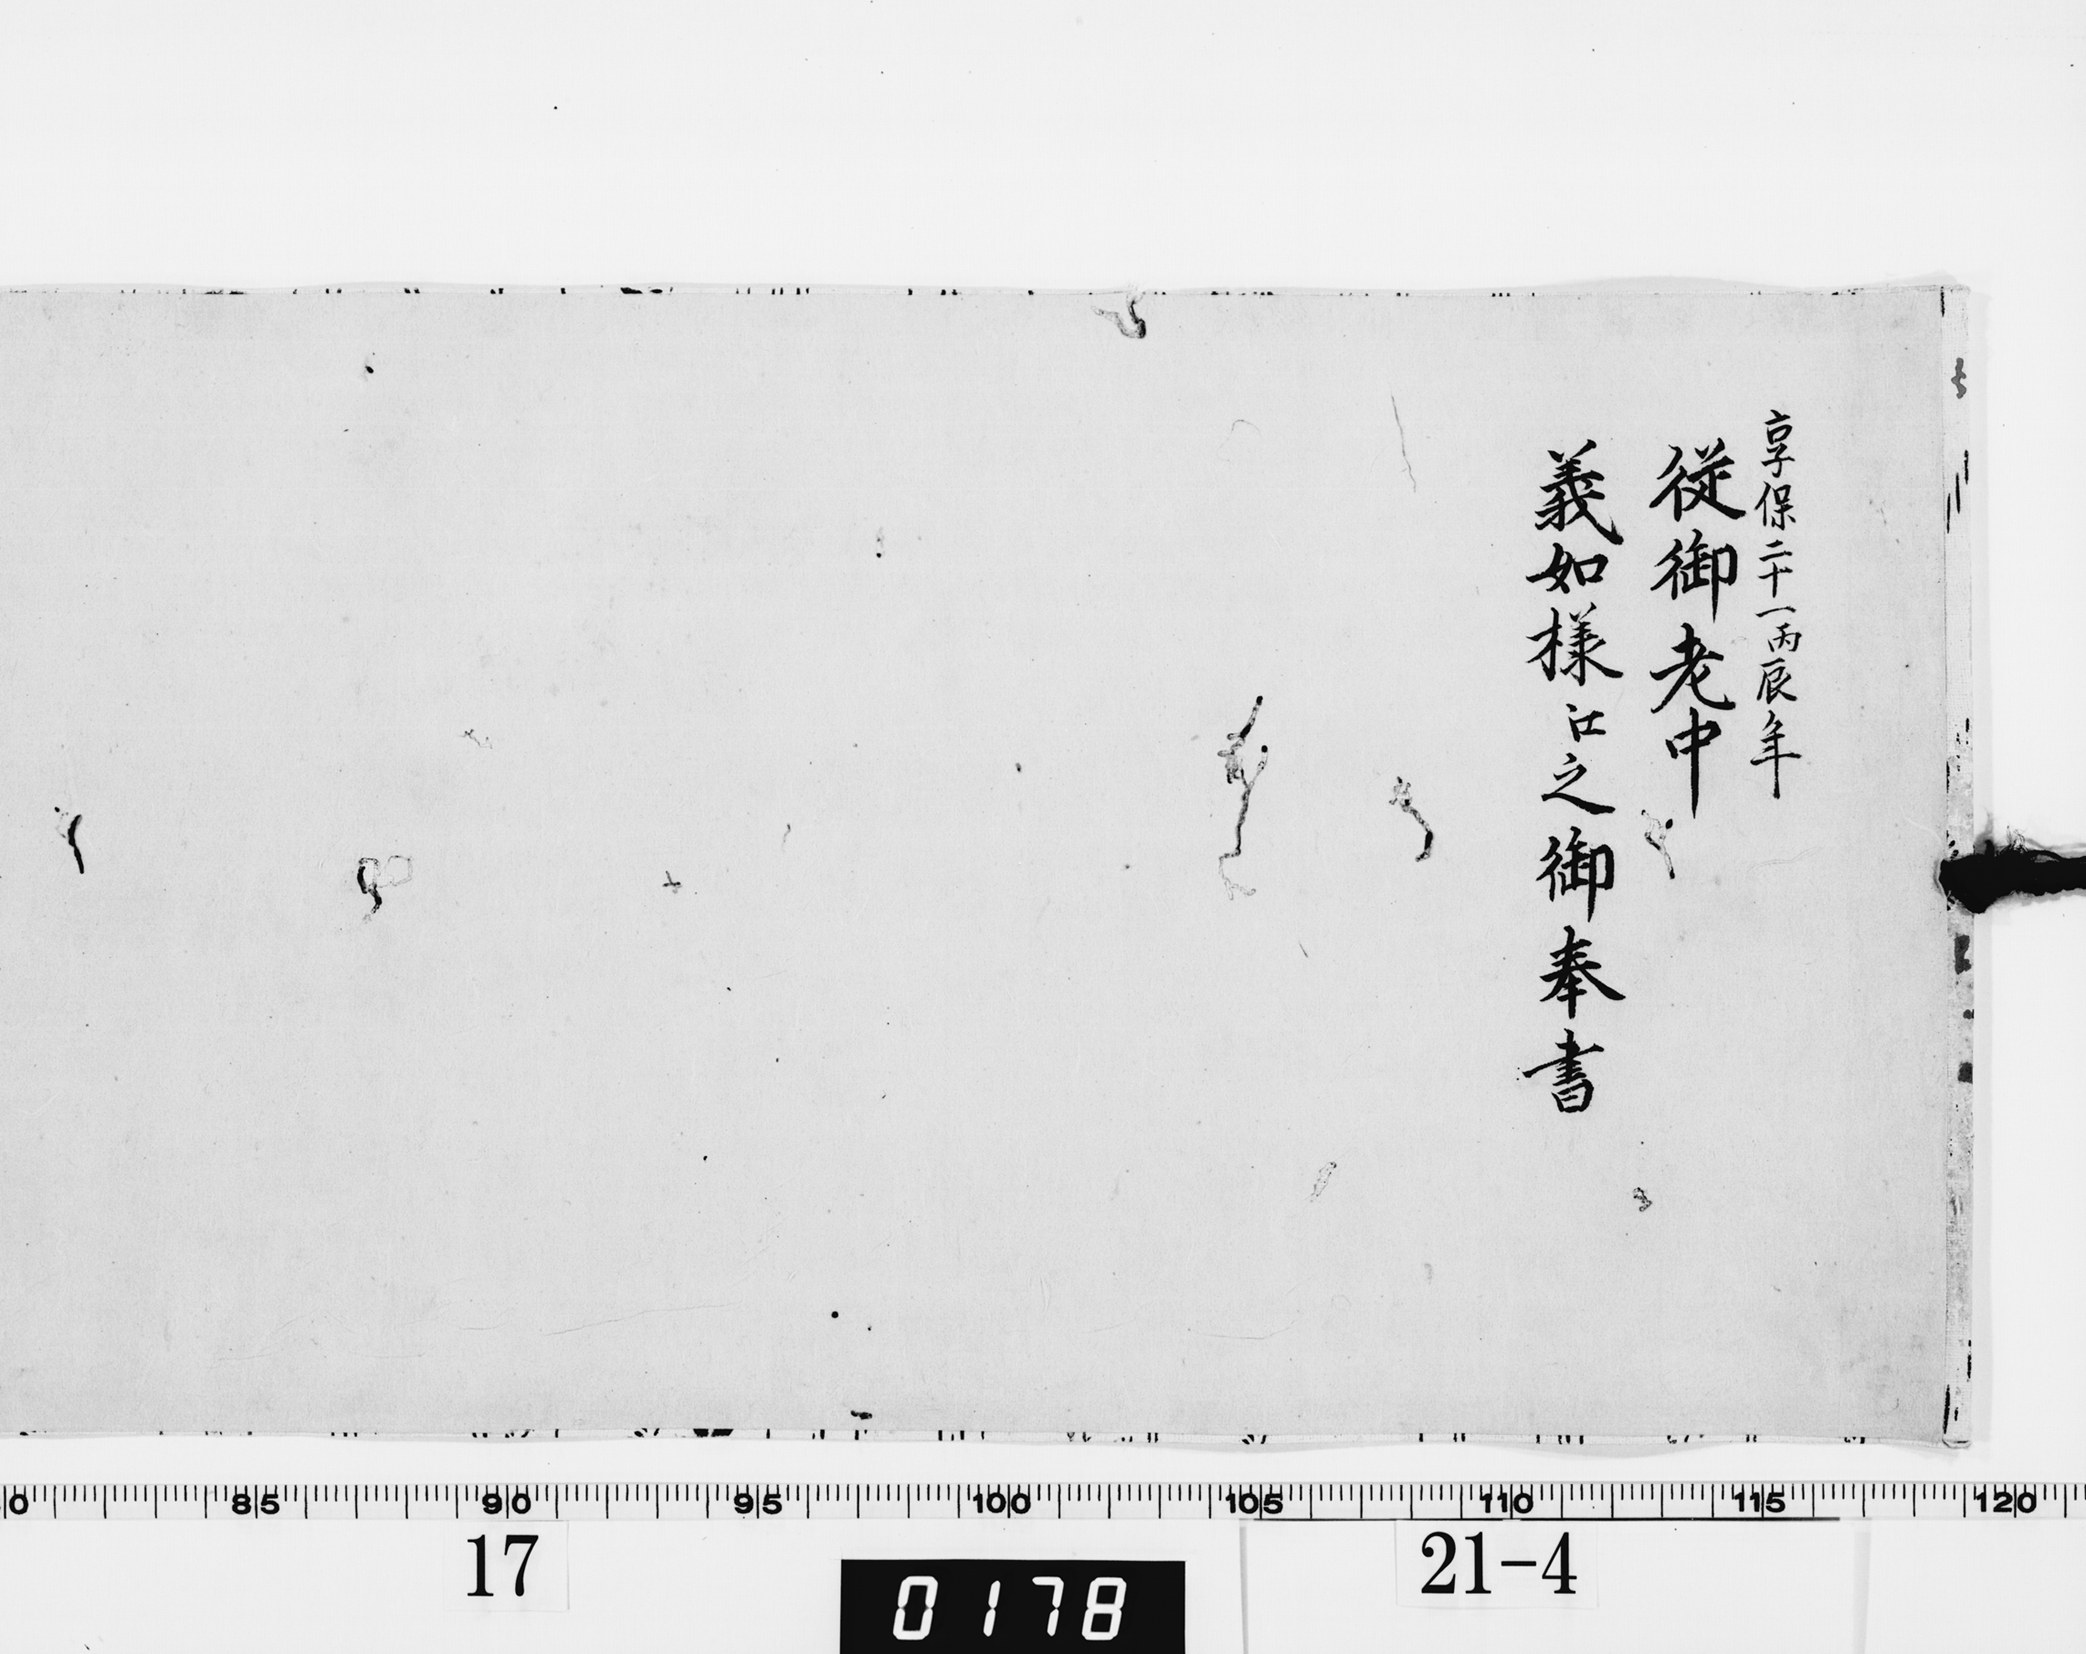 享保二十一丙辰年
従御老中
義如様江之御奉書
0 85 90 95 100 105 110 115 120
17
21-4
0178